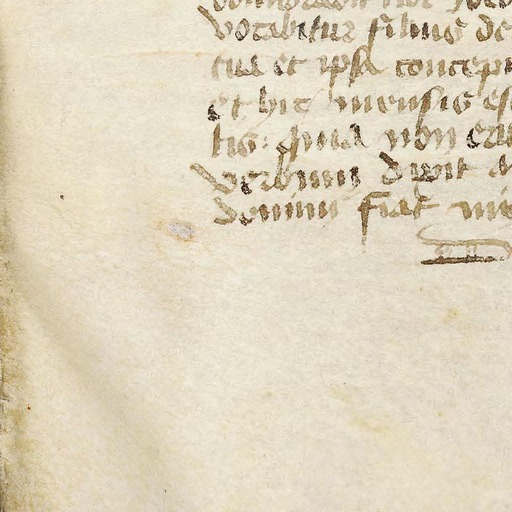 vocabitur filius de
tua et ipsa concep
et hic mensis es
tis: quia non era
verbum dixit
domini fiat mi